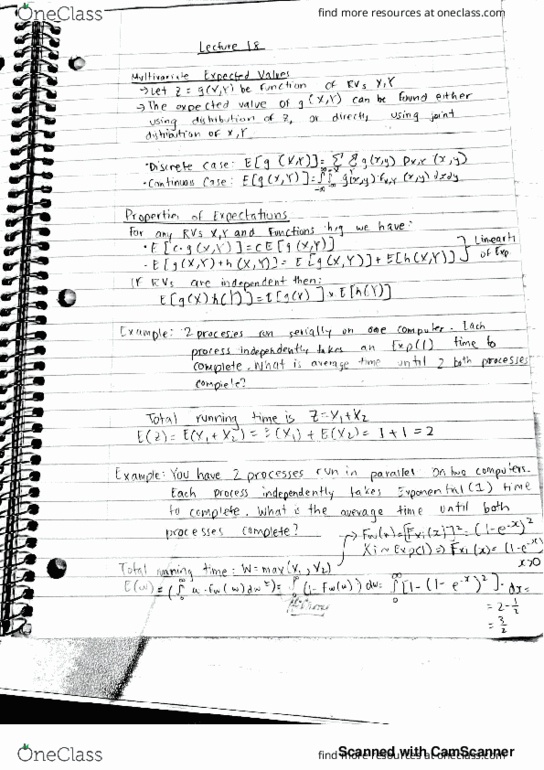 OneClass
find more resources at oneclass.com
Lecture 18
Multivariate Expected Values
→ Let Z = g(X,Y) be function of RVs X,Y
→ The expected value of g(X,Y) can be found either
using distribution of Z, or directly using joint
distribution of X,Y
• Discrete Case: E[g(X,Y)] = Σ Σ g(x,y) P_{X,Y}(x,y)
• Continuous Case: E[g(X,Y)] = ∫_{-∞}^{∞} ∫_{-∞}^{∞} g(x,y) f_{X,Y}(x,y) dxdy
Properties of Expectations
For any RVs X,Y and functions h,g we have:
• E[c·g(X,Y)] = cE[g(X,Y)]
• E[g(X,Y)+h(X,Y)] = E[g(X,Y)] + E[h(X,Y)]
of Exp
If RVs are independent then:
E[g(X)h(Y)] = E[g(X)] x E[h(Y)]
Example: 2 processes run serially on one computer. Each
process independently takes an Exp(1) time to
complete. What is average time until 2 both processes
complete?
Total running time is Z = X₁+X₂
E(Z) = E(X₁+X₂) = E(X₁) + E(X₂) = 1 + 1 = 2
Example: You have 2 processes run in parallel on two computers.
Each process independently takes Exponential (1) time
to complete. What is the average time until both
processes complete?
→ F_W(x) = [F_{Xi}(x)]² = (1-e^{-x})²
Xi ~ Exp(1) => F_{Xi}(x) = (1-e^{-x})
x>0
Total running time: W = max(X₁, X₂)
E(W) = (∫_0^∞ w·f_W(w)dw) = ∫_0^∞ (1-F_W(w)) dw = ∫_0^∞ [1-(1-e^{-x})²]·dx =
= 2 - 1/2
= 3/2
Scanned with CamScanner
OneClass
find more resources at oneclass.com